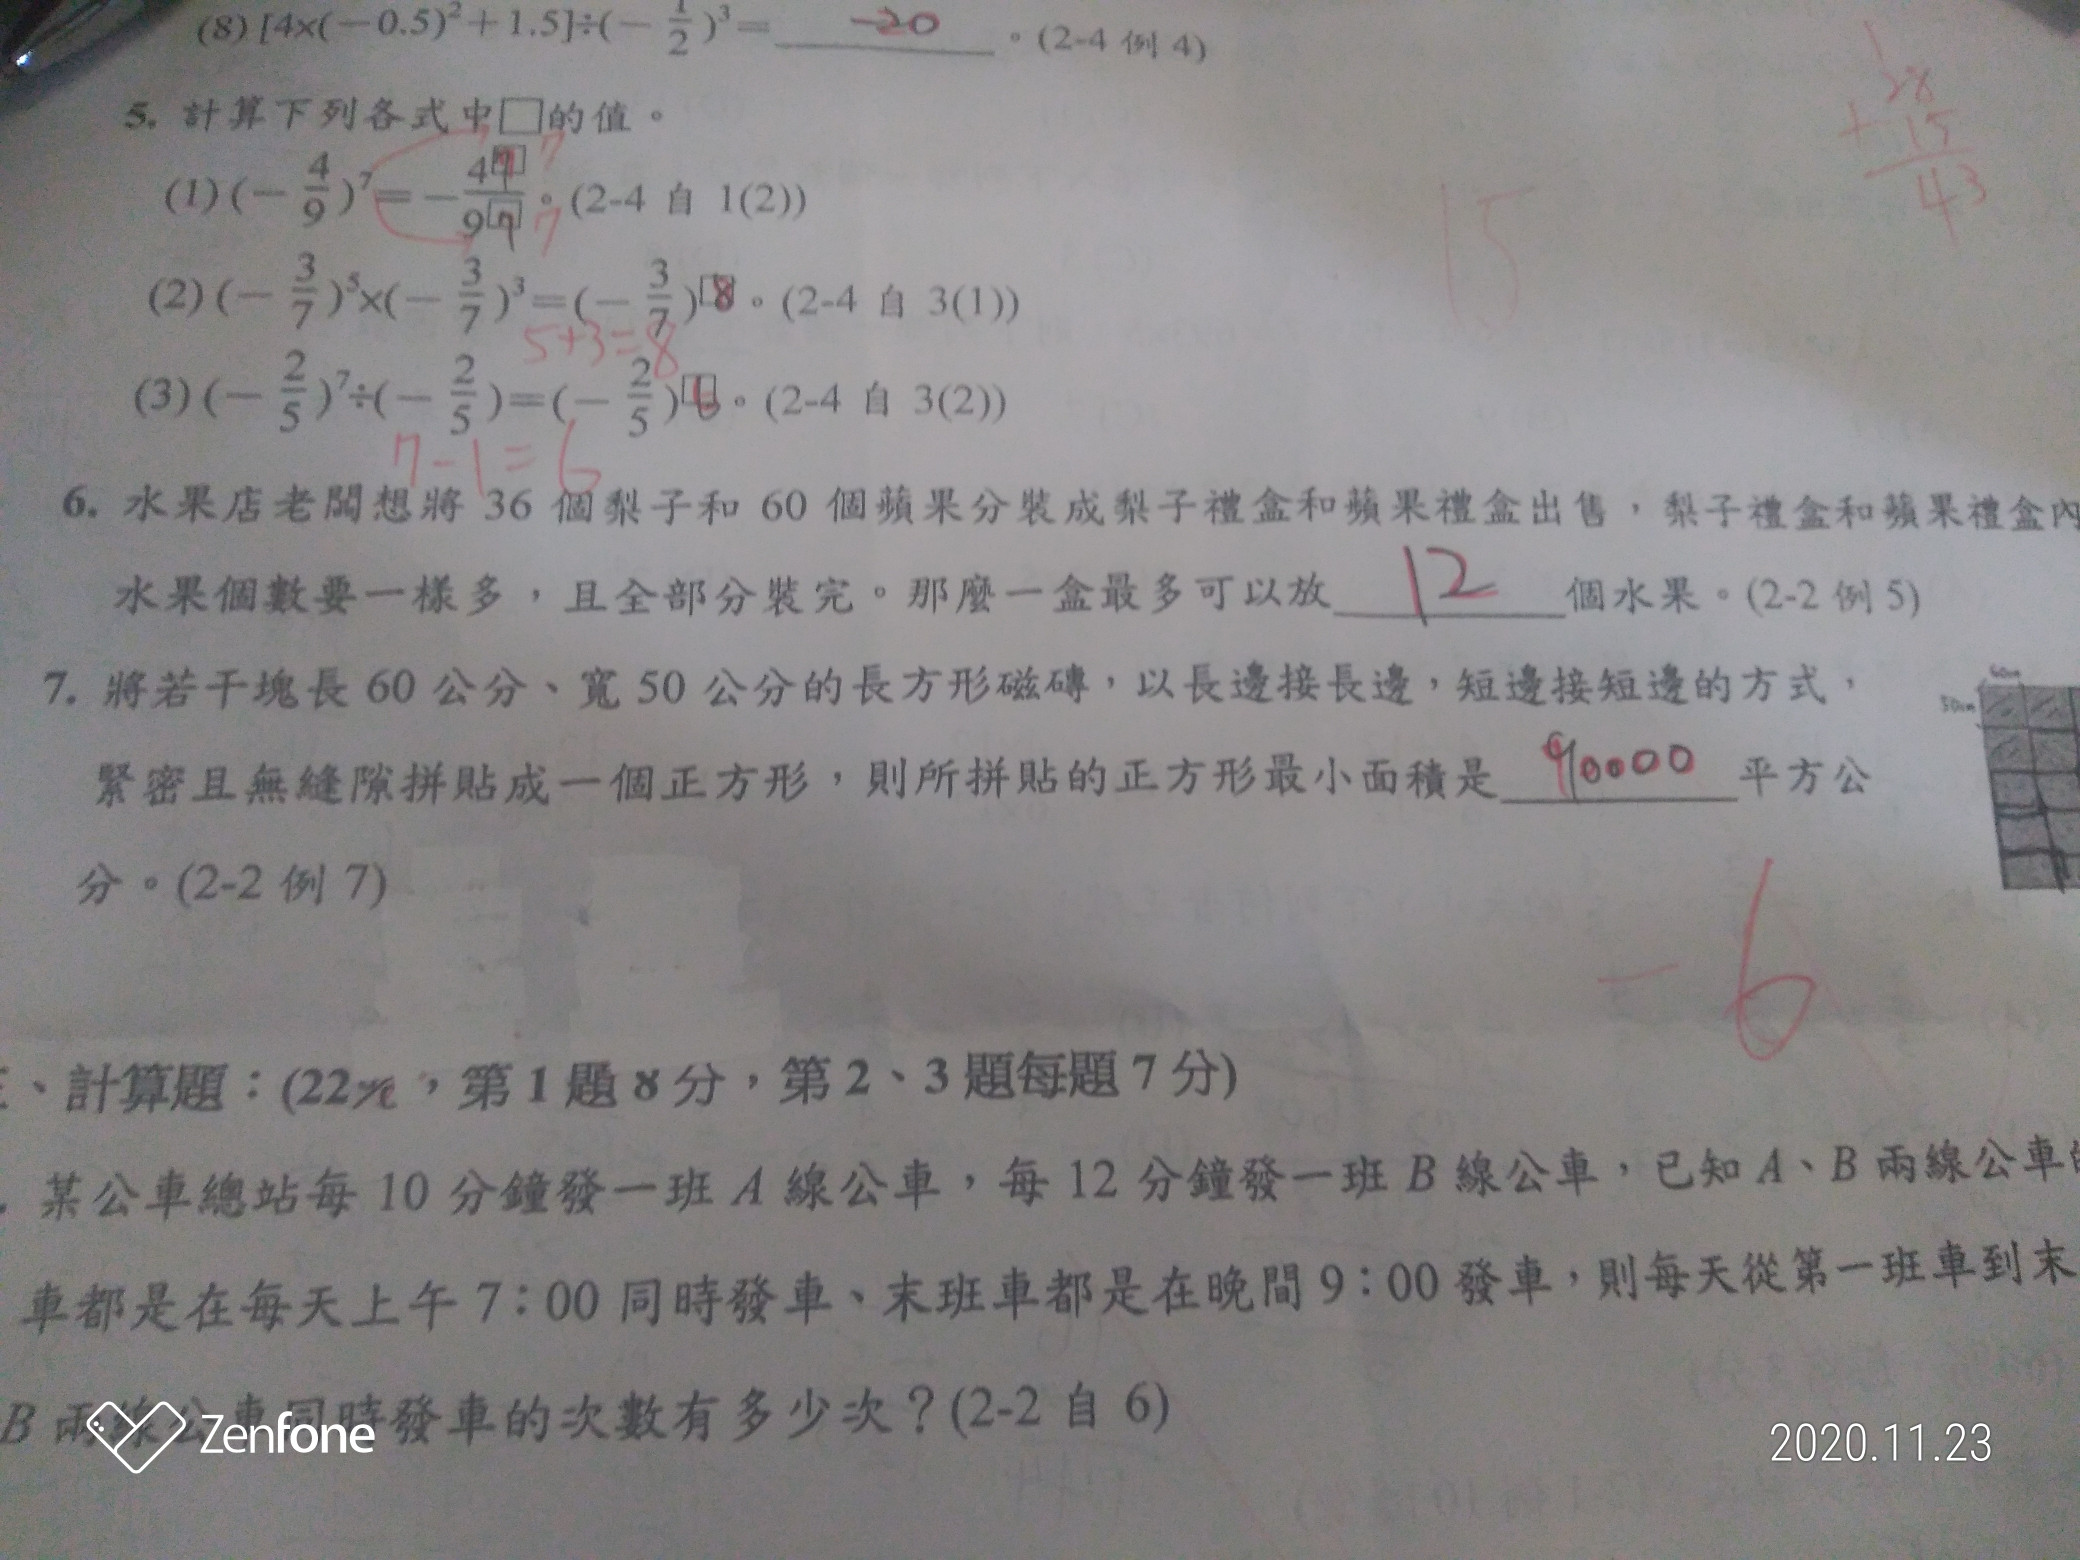 (8) [4×(－0.5)²＋1.5]÷(－1/2)³＝ -20 。(2-4 例 4)
1
28
+ 15
43
5. 計算下列各式中□的值。
(1) (－4/9)⁷＝－4□/9□。(2-4 自 1(2))
7
7
15
(2) (－3/7)⁵×(－3/7)³＝(－3/7)□ 8。(2-4 自 3(1))
5+3=8
(3) (－2/5)⁷÷(－2/5)＝(－2/5)□ 6。(2-4 自 3(2))
7-1=6
6. 水果店老闆想將 36 個梨子和 60 個蘋果分裝成梨子禮盒和蘋果禮盒出售，梨子禮盒和蘋果禮盒內
水果個數要一樣多，且全部分裝完。那麼一盒最多可以放 12 個水果。(2-2 例 5)
7. 將若干塊長 60 公分、寬 50 公分的長方形磁磚，以長邊接長邊，短邊接短邊的方式，
60cm
50cm
緊密且無縫隙拼貼成一個正方形，則所拼貼的正方形最小面積是 90000 平方公
分。(2-2 例 7)
-6
、計算題：(22分，第 1 題 8 分，第 2、3 題每題 7 分)
. 某公車總站每 10 分鐘發一班 A 線公車，每 12 分鐘發一班 B 線公車，已知 A、B 兩線公車的
車都是在每天上午 7：00 同時發車、末班車都是在晚間 9：00 發車，則每天從第一班車到末
B 兩線公車同時發車的次數有多少次？(2-2 自 6)
Zenfone
2020.11.23